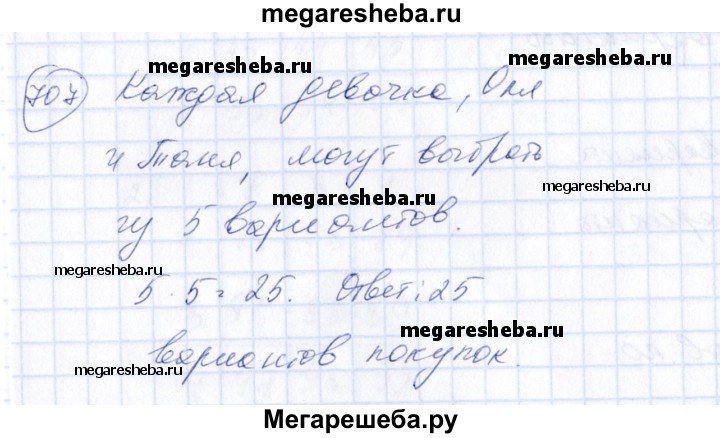 megaresheba.ru
megaresheba.ru
megaresheba.ru
707 Каждая девочка, Оля
и Таня, могут выбрать
megaresheba.ru
megaresheba.ru
из 5 вариантов.
megaresheba.ru
5 · 5 = 25. Ответ: 25
megaresheba.ru
вариантов покупок.
Мегарешеба.ру